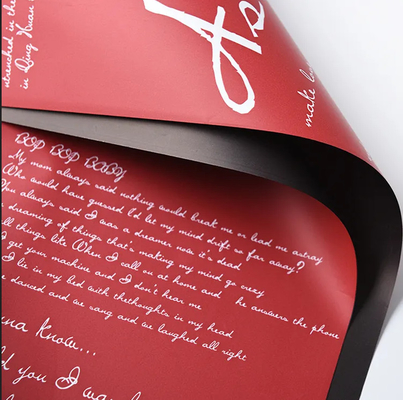 As
make
entrenched in the
in Qing Yuan
BOP BOP BABY
My mom always said nothing would break me or lead me astray
Who would have guessed I'd be my mind drift so far away?
You always said I was a dreamer now it's dead
dreaming of things that's making my mind go crazy
all things like When I call us at home and he answers the phone
I get your machine and I don't hear me
I lie in my bed with thethoughts in my head
we danced and we sang and we laughed all right
na know...
d you I